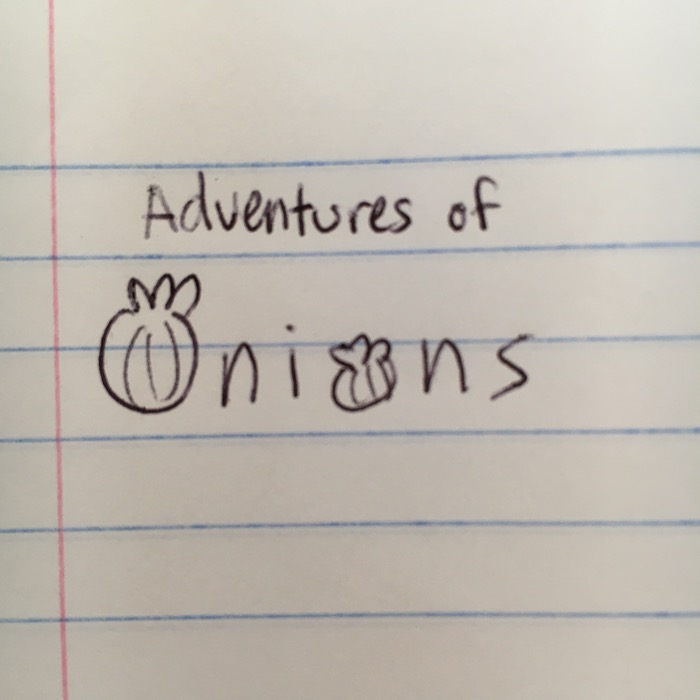 Adventures of
Onions